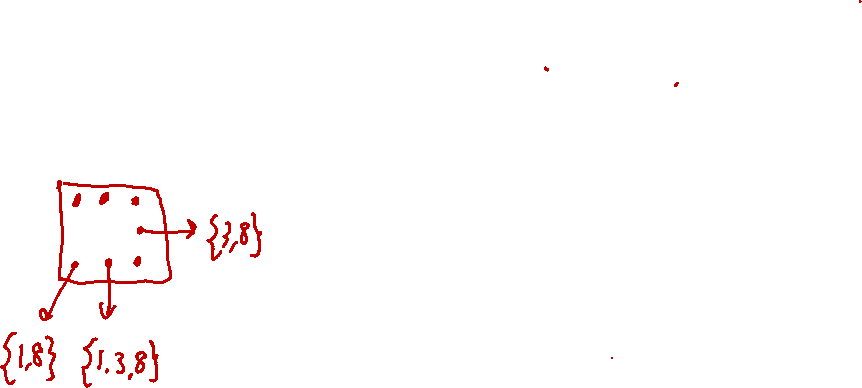 {3,8}
{1,8} {1.3,8}